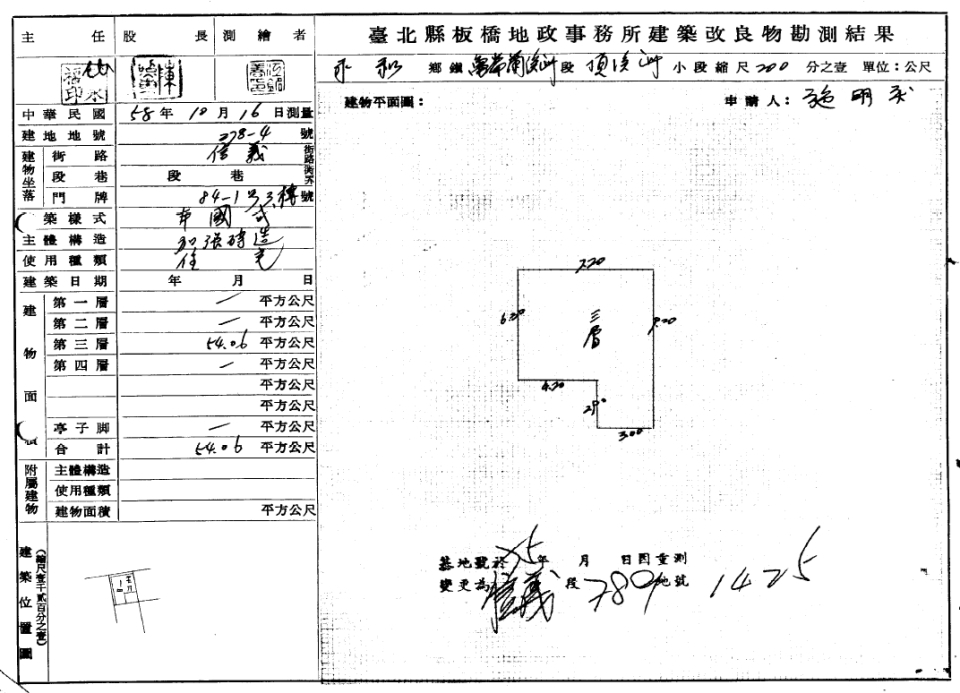 臺北縣板橋地政事務所建築改良物勘測結果
主任 股長 測繪者
永和 鄉鎮 段 頂溪洲 小段 縮尺 200 分之壹 單位：公尺
建物平面圖： 申請人： 施明
中華民國 58年10月16日測量
建地地號 278-4 號
建物坐落 街路 信義 街路
段巷 段 巷
門牌 84-1号3樓 號
築樣式 本國式
主體構造 加強磚造
使用種類 住宅
建築日期 年 月 日
建物面積
第一層 — 平方公尺
第二層 — 平方公尺
第三層 54.06 平方公尺
第四層 — 平方公尺
平方公尺
平方公尺
亭子脚 — 平方公尺
合計 54.06 平方公尺
附屬建物
主體構造
使用種類
建物面積 平方公尺
建築位置圖
(縮尺壹千貳百分之壹)
7.20
三層
4.20
3.00
基地號於75年 月 日因重測
變更為信義段789地號 1425